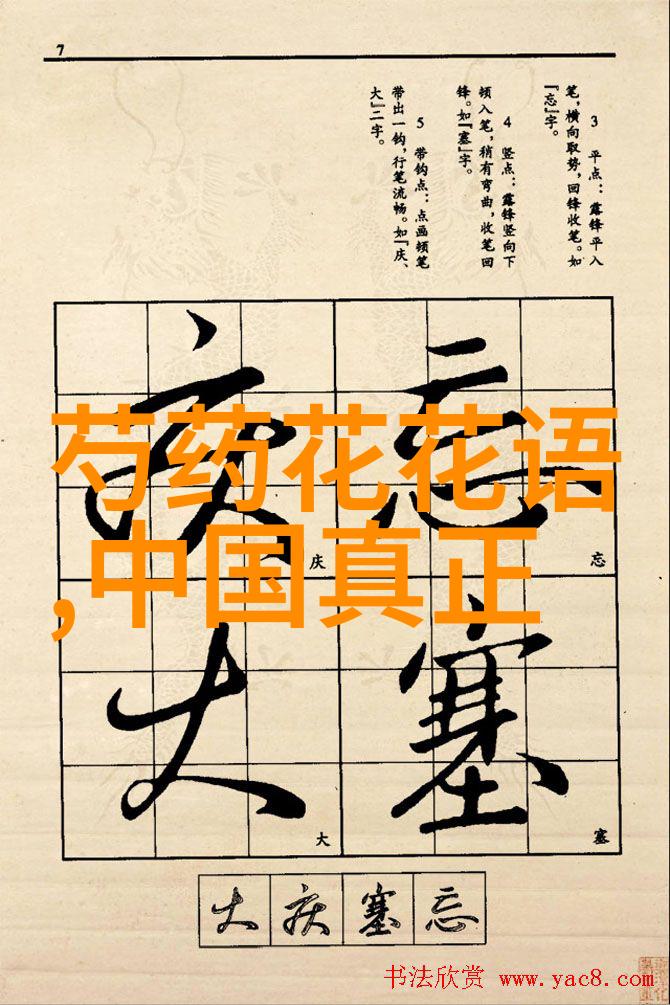 7
3 平点：露锋平入
笔，横向取势，回锋收笔。如
『忘』字。
4 竖点：露锋竖向下
顿入笔，稍有弯曲，收笔回
锋。如『塞』字。
5 带钩点：点画顿笔
带出一钩，行笔流畅。如『庆、
大』二字。
忘
庆
塞
大
芍药花花语
,中国真正
庆
忘
大
塞
大庆塞忘
书法欣赏 www.yac8.com